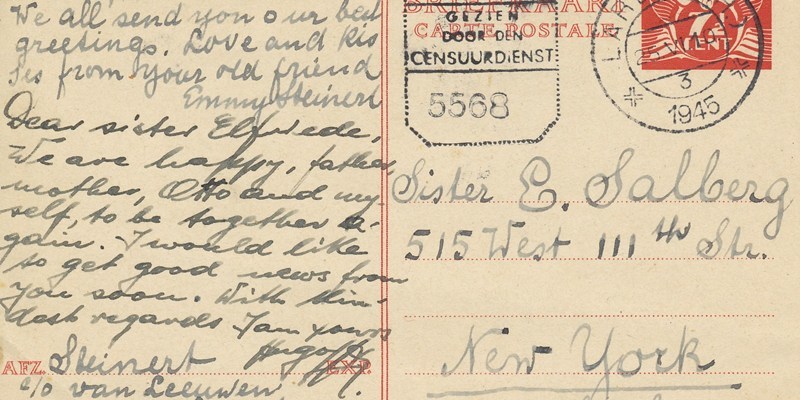 We all send you our best
greetings. Love and kis
ses from your old friend
Emmy Steinert
Dear sister Elfriede,
We are happy, father,
mother, Otto and my-
self, to be together a-
gain. I would like
to get good news from
you soon. With kin-
dest regards I am yours
AFZ. Steinert EXP.
c/o van Leeuwen,
BRIEFKAART
CARTE POSTALE
GEZIEN
DOOR DEN
CENSUURDIENST
5568
7½
CENT
3
1945
Sister E. Salberg
515 West 111th Str.
New York